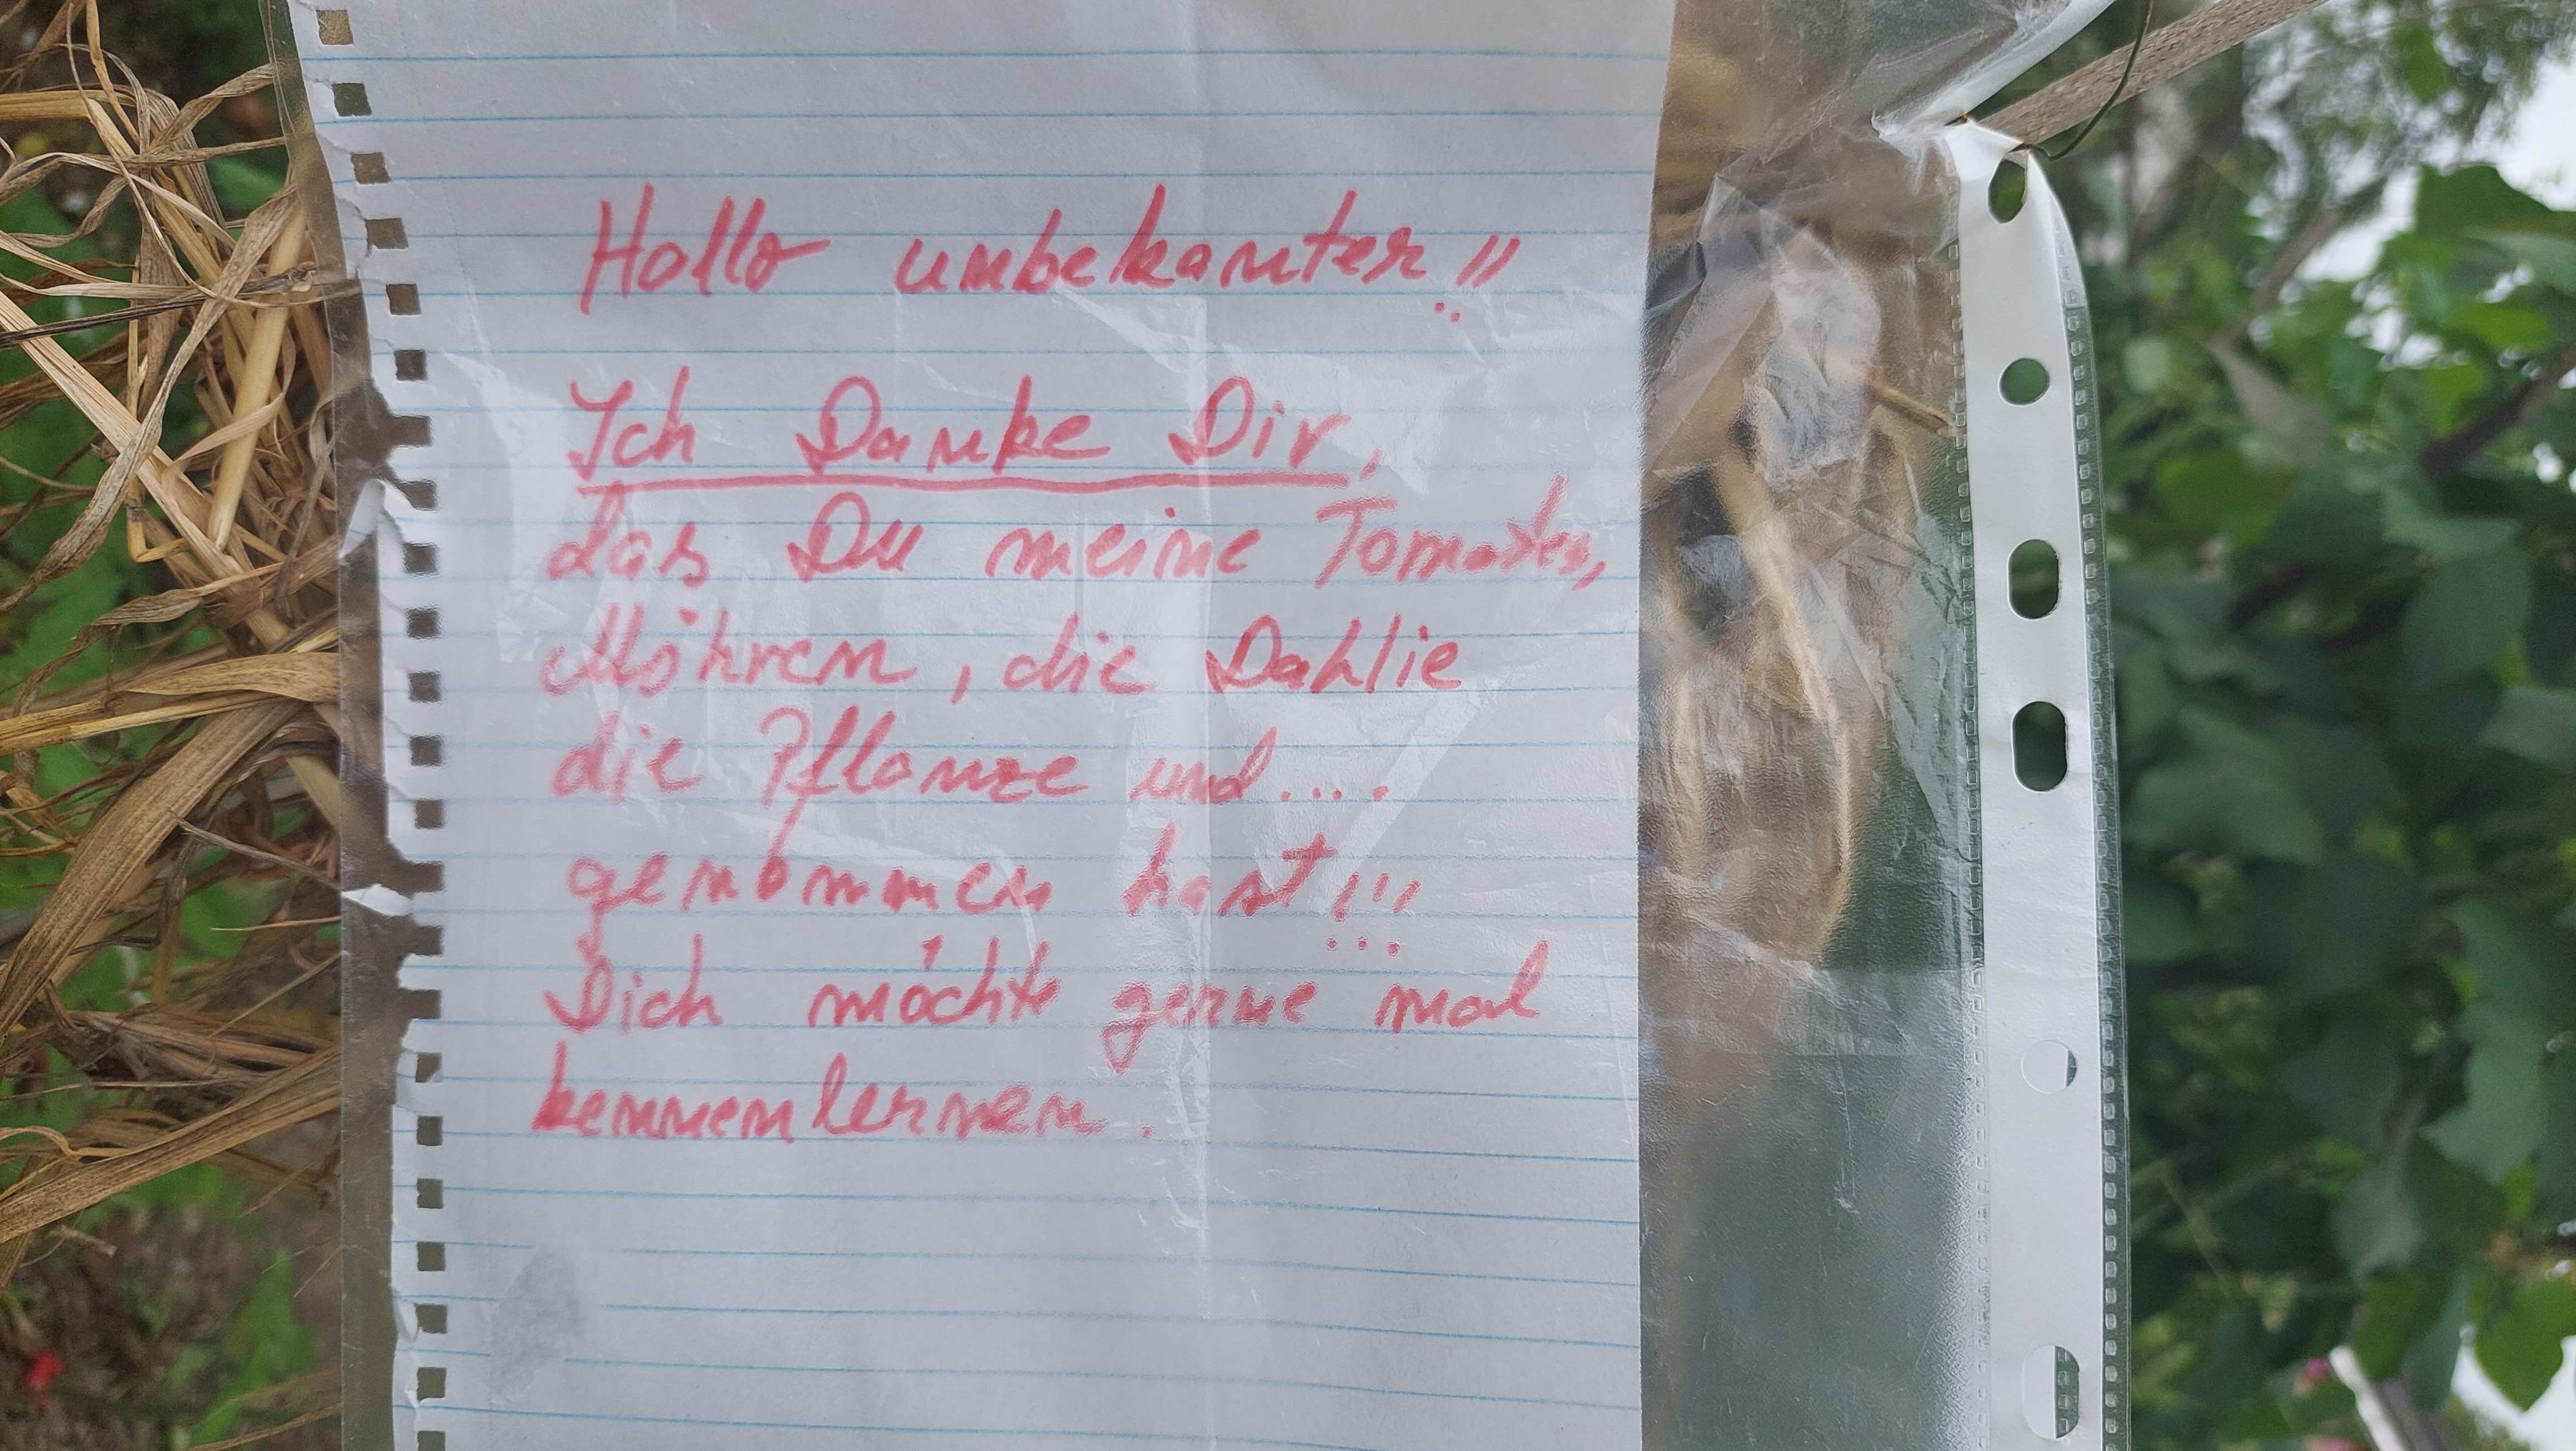 Hallo unbekanter!!
Ich Danke Dir,
das Du meine Tomaten,
Möhren, die Dahlie
die Pflanze und....
genommen hast!!!
Dich möchte gerne mal
kennenlernen.